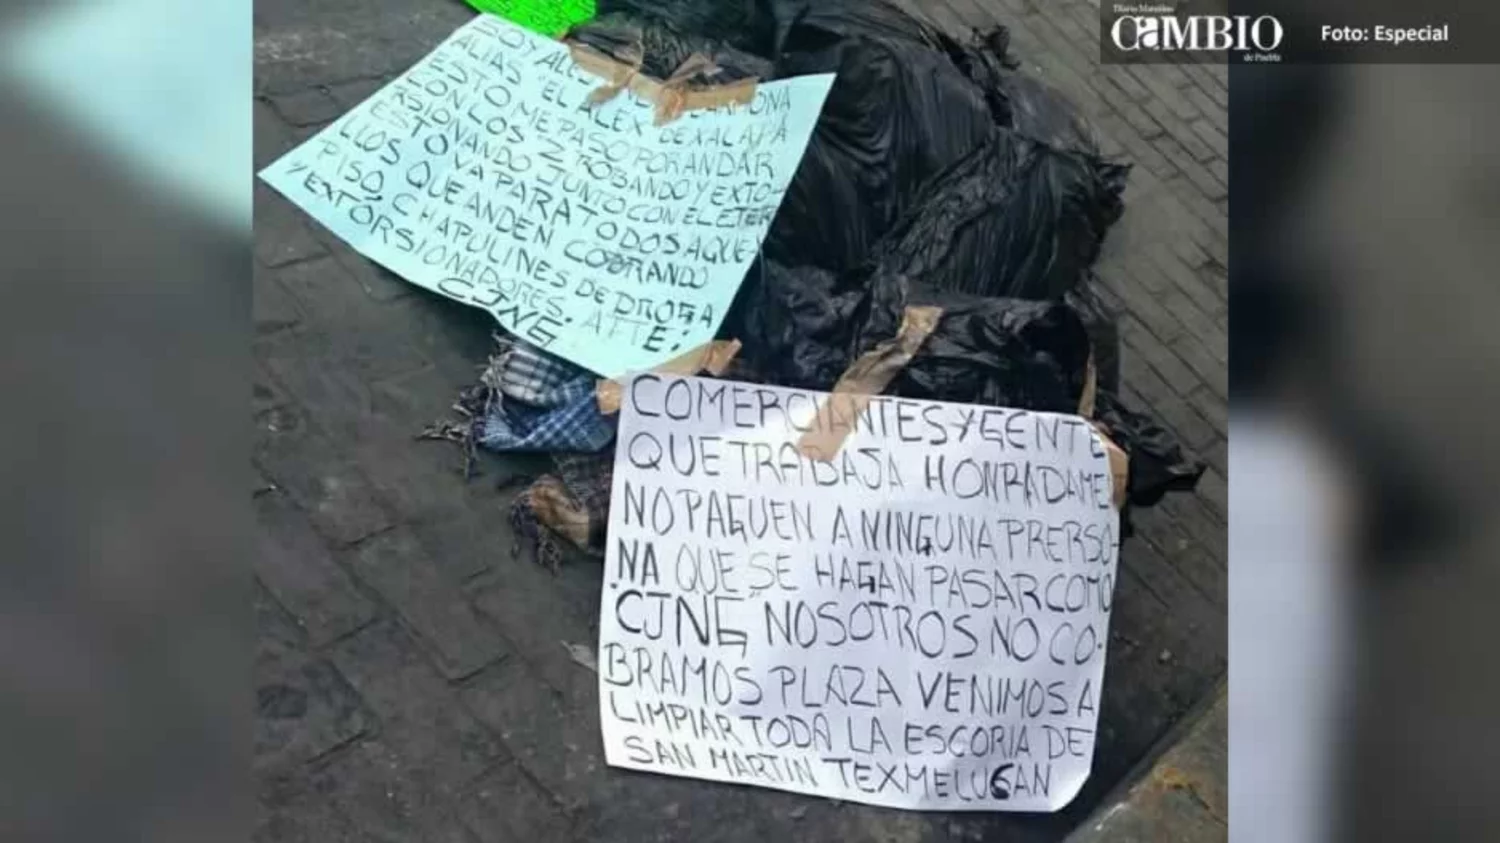 Diario Matutino
CAMBIO
de Puebla
Foto: Especial
SOY
ALIAS "EL ALEX DE XALAPA
ESTO ME PASO POR ANDAR
CON LOS Z ROBANDO Y EXTO-
RSIONANDO JUNTO CON EL
ESTO VA PARA TODOS AQUE-
LLOS QUE ANDEN COBRANDO
PISO, CHAPULINES DE DROGA
"EXTORSIONADORES. ATTE:
CJNG
COMERCIANTES Y GENTE
QUE TRABAJA HONRADAME
NO PAGUEN A NINGUNA PRERSO-
NA QUE SE HAGAN PASAR COMO
"CJNG" NOSOTROS NO CO-
BRAMOS PLAZA VENIMOS A
LIMPIAR TODA LA ESCORIA DE
SAN MARTIN TEXMELUSAN